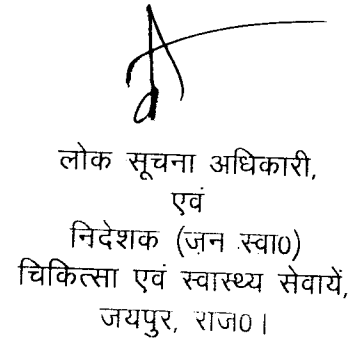 लोक सूचना अधिकारी,
एवं
निदेशक (जन स्वा0)
चिकित्सा एवं स्वास्थ्य सेवायें,
जयपुर, राज0।